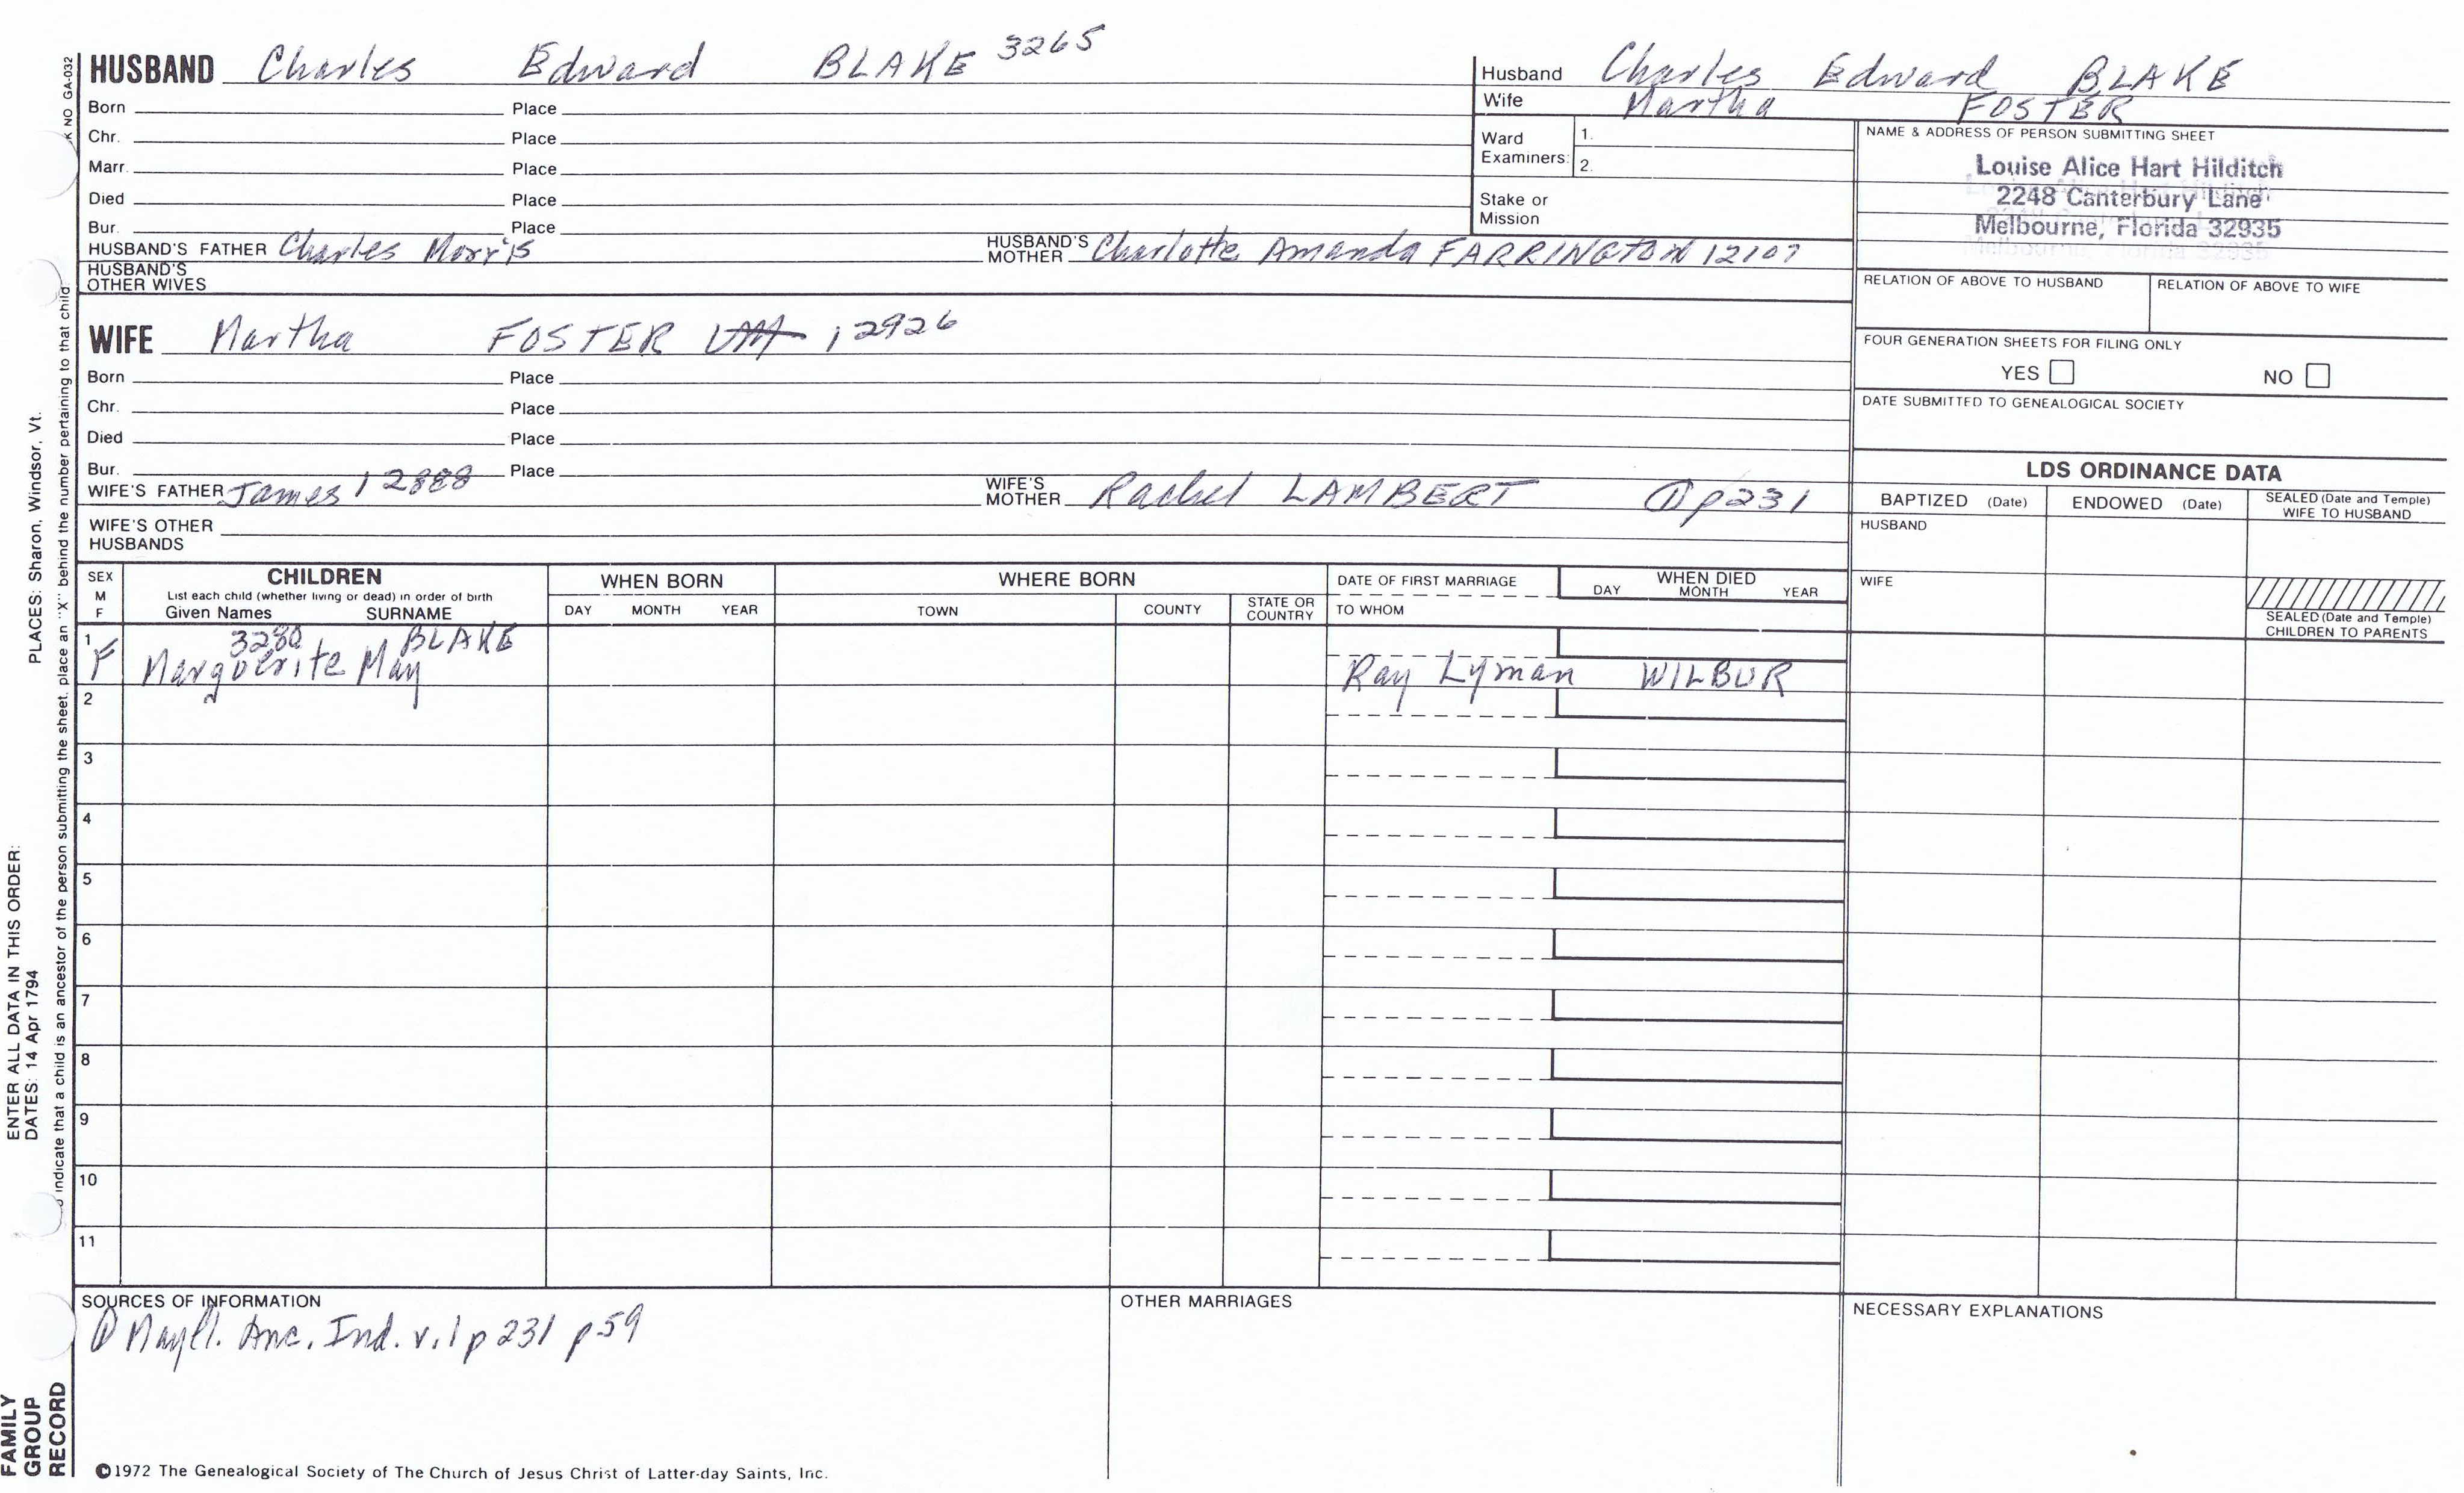 HUSBAND Charles Edward BLAKE 3265
Born Place
Chr. Place
Marr. Place
Died Place
Bur. Place
HUSBAND'S FATHER Charles Morris HUSBAND'S MOTHER Charlotte Amanda FARRINGTON 12107
HUSBAND'S OTHER WIVES
WIFE Martha FOSTER 12926
Born Place
Chr. Place
Died Place
Bur. Place
WIFE'S FATHER James 12888 WIFE'S MOTHER Rachel LAMBERT ① p231
WIFE'S OTHER HUSBANDS
Husband Charles Edward BLAKE
Wife Martha FOSTER
Ward Examiners: 1.
2.
Stake or Mission
NAME & ADDRESS OF PERSON SUBMITTING SHEET
Louise Alice Hart Hilditch
2248 Canterbury Lane
Melbourne, Florida 32935
RELATION OF ABOVE TO HUSBAND RELATION OF ABOVE TO WIFE
FOUR GENERATION SHEETS FOR FILING ONLY
YES NO
DATE SUBMITTED TO GENEALOGICAL SOCIETY
LDS ORDINANCE DATA
BAPTIZED (Date) ENDOWED (Date) SEALED (Date and Temple) WIFE TO HUSBAND
HUSBAND
WIFE
SEALED (Date and Temple) CHILDREN TO PARENTS
SEX M F
CHILDREN
List each child (whether living or dead) in order of birth
Given Names SURNAME
WHEN BORN
DAY MONTH YEAR
WHERE BORN
TOWN COUNTY STATE OR COUNTRY
DATE OF FIRST MARRIAGE
TO WHOM
WHEN DIED
DAY MONTH YEAR
1 3280 BLAKE
F Marguerite May Ray Lyman WILBUR
2
3
4
5
6
7
8
9
10
11
SOURCES OF INFORMATION
① Mayfl. Anc. Ind. v.1 p 231 p 59
OTHER MARRIAGES
NECESSARY EXPLANATIONS
©1972 The Genealogical Society of The Church of Jesus Christ of Latter-day Saints, Inc.
FAMILY
GROUP
RECORD
ENTER ALL DATA IN THIS ORDER:
DATES: 14 Apr 1794 PLACES: Sharon, Windsor, Vt.
indicate that a child is an ancestor of the person submitting the sheet, place an "X" behind the number pertaining to that child
NO GA-032